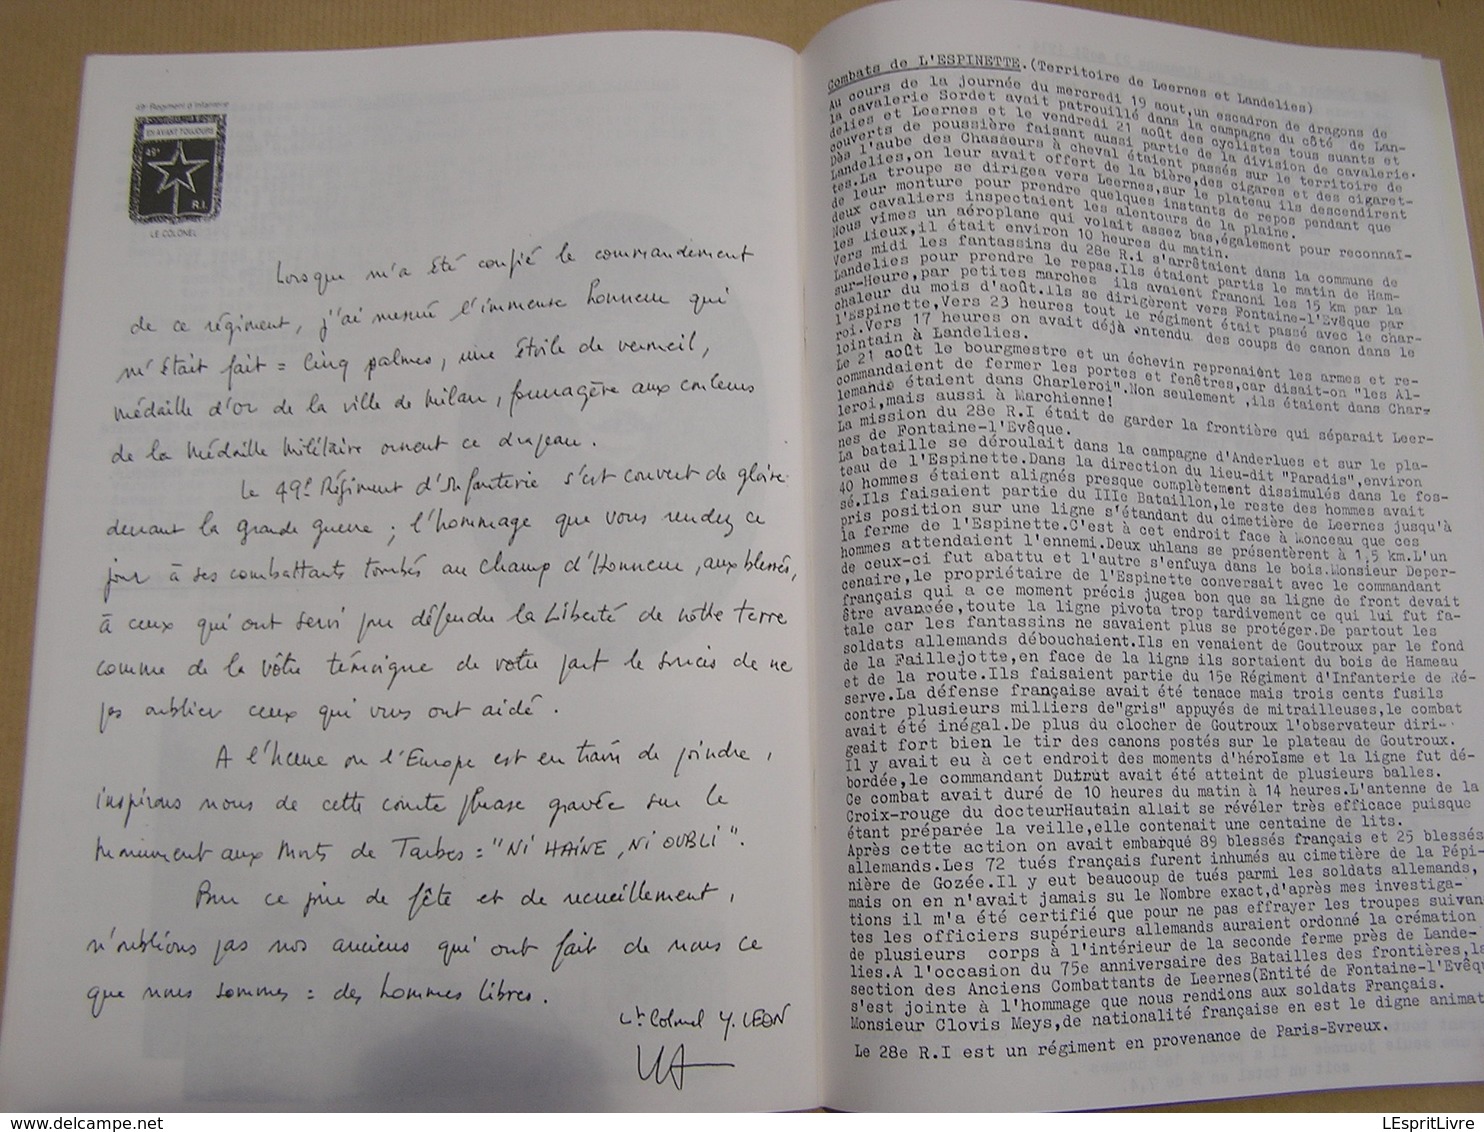 49e Régiment d'Infanterie
EN AVANT TOUJOURS
49e
R.I.
LE COLONEL
Lorsque m'a été confié le commandement
de ce régiment, j'ai mesuré l'immense honneur qui
m'était fait = Cinq palmes, une étoile de vermeil,
médaille d'or de la ville de Milan, fourragère aux couleurs
de la Médaille Militaire ornent ce drapeau.
Le 49e Régiment d'Infanterie s'est couvert de gloire
durant la grande guerre ; l'hommage que vous rendez ce
jour à ses combattants tombés au champ d'Honneur, aux blessés,
à ceux qui ont servi pour défendre la Liberté de notre terre
comme de la vôtre témoigne de votre part le soucis de ne
pas oublier ceux qui vous ont aidé.
A l'heure où l'Europe est en train de joindre,
inspirons nous de cette courte phrase gravée sur le
Monument aux Morts de Tarbes = "NI HAINE, NI OUBLI".
Pour ce jour de fête et de recueillement,
n'oublions pas nos anciens qui ont fait de nous ce
que nous sommes = des hommes libres.
Lt Colonel Y. LEON
Combats de L'ESPINETTE.(Territoire de Leernes et Landelies)
Au cours de la journée du mercredi 19 aout,un escadron de dragons de
la cavalerie Sordet avait patrouillé dans la campagne du côté de Lan-
delies et Leernes et le vendredi 21 août des cyclistes tous suants et
couverts de poussière faisant aussi partie de la division de cavalerie.
Dès l'aube des Chasseurs à cheval étaient passés sur le territoire de
Landelies,on leur avait offert de la bière,des cigares et des cigaret-
tes.La troupe se dirigea vers Leernes,sur le plateau ils descendirent
de leur monture pour prendre quelques instants de repos pendant que
deux cavaliers inspectaient les alentours de la plaine.
Nous vimes un aéroplane qui volait assez bas,également pour reconnaî-
les lieux,il était environ 10 heures du matin.
Vers midi les fantassins du 28e R.I s'arrêtaient dans la commune de
Landelies pour prendre le repas.Ils étaient partis le matin de Ham-
sur-Heure,par petites marches ils avaient franoni les 15 km par la
chaleur du mois d'août.ils se dirigèrent vers Fontaine-l'Evêque par
l'Espinette,Vers 23 heures tout le régiment était passé avec le char-
roi.Vers 17 heures on avait déjà entendu des coups de canon dans le
lointain à Landelies.
Le 21 août le bourgmestre et un échevin reprenaient les armes et re-
commandaient de fermer les portes et fenêtres,car disait-on "les Al-
lemands étaient dans Charleroi".Non seulement ,ils étaient dans Char-
leroi,mais aussi à Marchienne!
La mission du 28e R.I était de garder la frontière qui séparait Leer-
nes de Fontaine-l'Evêque.
La bataille se déroulait dans la campagne d'Anderlues et sur le pla-
teau de l'Espinette.Dans la direction du lieu-dit "Paradis",environ
40 hommes étaient alignés presque complètement dissimulés dans le fos-
sé.Ils faisaient partie du IIIe Bataillon,le reste des hommes avait
pris position sur une ligne s'étandant du cimetière de Leernes jusqu'à
la ferme de l'Espinette.C'est à cet endroit face à Monceau que ces
hommes attendaient l'ennemi.Deux uhlans se présentèrent à 1,5 km.L'un
de ceux-ci fut abattu et l'autre s'enfuya dans le bois.Monsieur Deper-
cenaire,le propriétaire de l'Espinette conversait avec le commandant
français qui a ce moment précis jugea bon que sa ligne de front devait
être avancée,toute la ligne pivota trop tardivement ce qui lui fut fa-
tale car les fantassins ne savaient plus se protéger.De partout les
soldats allemands débouchaient.Ils en venaient de Goutroux par le fond
de la Faillejotte,en face de la ligne ils sortaient du bois de Hameau
et de la route.Ils faisaient partie du 15e Régiment d'Infanterie de Ré-
serve.La défense française avait été tenace mais trois cents fusils
contre plusieurs milliers de"gris" appuyés de mitrailleuses,le combat
avait été inégal.De plus du clocher de Goutroux l'observateur diri-
geait fort bien le tir des canons postés sur le plateau de Goutroux.
Il y avait eu à cet endroit des moments d'héroïsme et la ligne fut dé-
bordée,le commandant Dutrut avait été atteint de plusieurs balles.
Ce combat avait duré de 10 heures du matin à 14 heures.L'antenne de la
Croix-rouge du docteurHautain allait se révéler très efficace puisque
étant préparée la veille,elle contenait une centaine de lits.
Après cette action on avait embarqué 89 blessés français et 25 blessés
allemands.Les 72 tués français furent inhumés au cimetière de la Pépi-
nière de Gozée.Il y eut beaucoup de tués parmi les soldats allemands,
mais on en n'avait jamais su le Nombre exact,d'après mes investiga-
tions il m'a été certifié que pour ne pas effrayer les troupes suivan
tes les officiers supérieurs allemands auraient ordonné la crémation
de plusieurs corps à l'intérieur de la seconde ferme près de Lande-
lies.A l'occasion du 75e anniversaire des Batailles des frontières,la
section des Anciens Combattants de Leernes(Entité de Fontaine-l'Evêqu
s'est jointe à l'hommage que nous rendions aux soldats Français.
Monsieur Clovis Meys,de nationalité française en est le digne animat
Le 28e R.I est un régiment en provenance de Paris-Evreux.
LEspritLivre